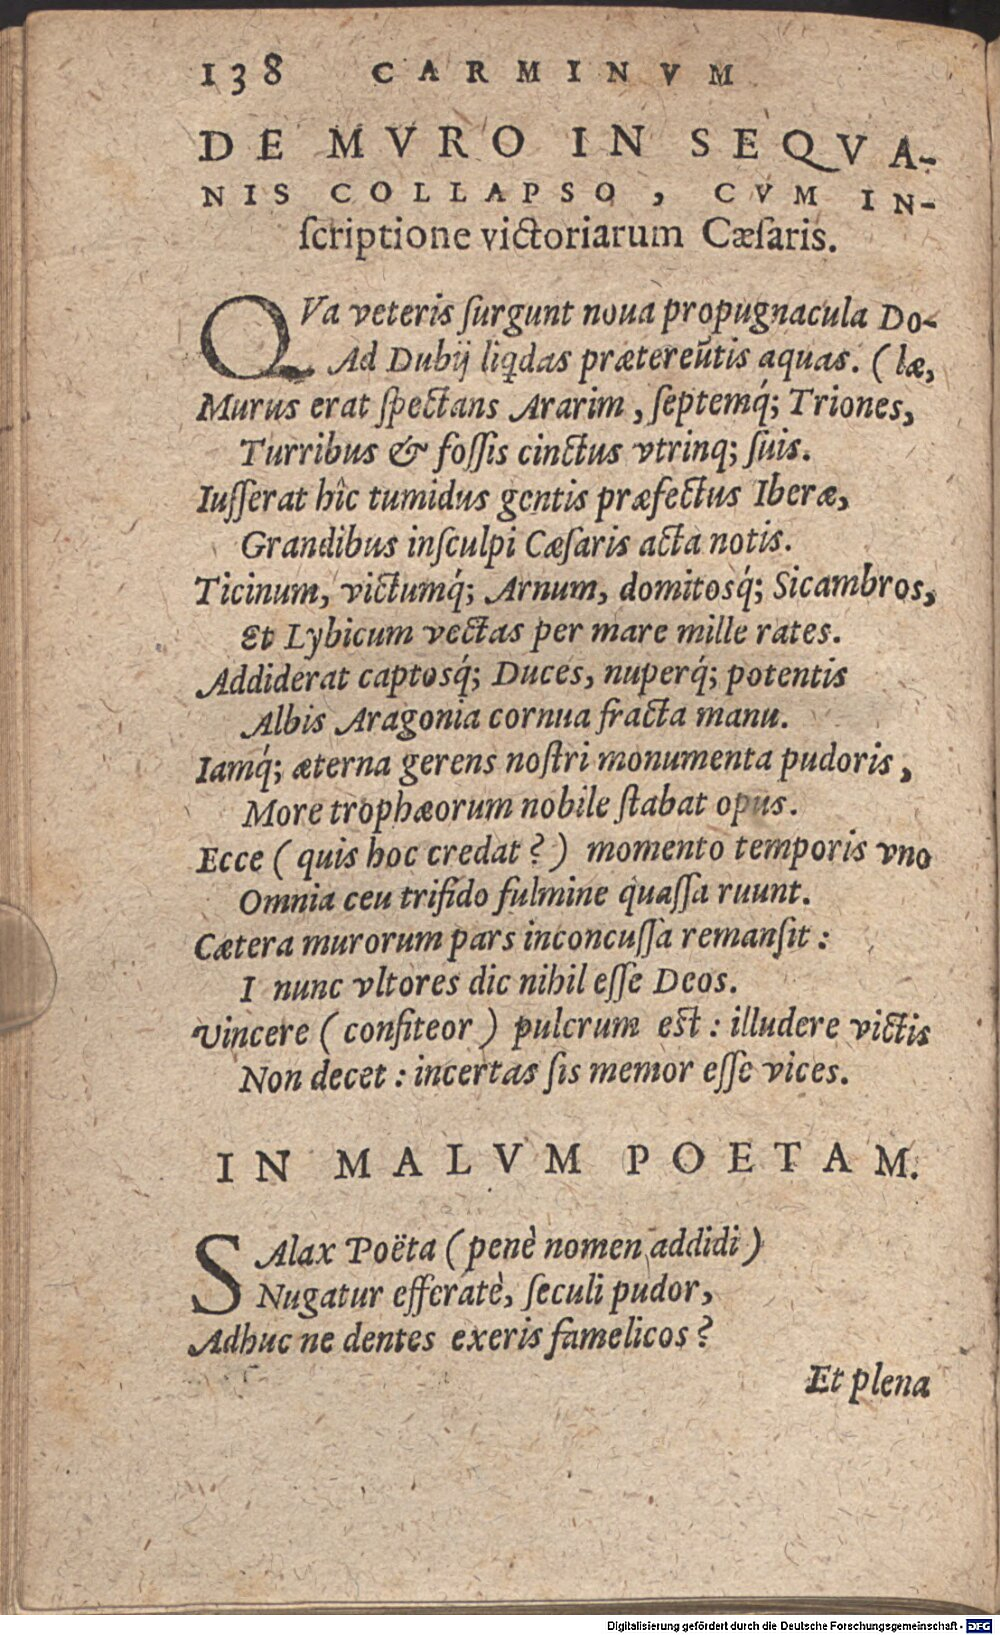 138 CARMINVM
DE MVRO IN SEQVA-
NIS COLLAPSO, CVM IN-
ſcriptione victoriarum Cæſaris.
QVa veteris ſurgunt noua propugnacula Do-
Ad Dubij liq́das prætereũtis aquas. (læ,
Murus erat ſpectans Ararim, ſeptemq́; Triones,
Turribus & foſſis cinctus vtrinq; ſuis.
Iuſſerat hîc tumidus gentis præfectus Iberæ,
Grandibus inſculpi Cæſaris acta notis.
Ticinum, victumq́; Arnum, domitosq́; Sicambros,
Et Lybicum vectas per mare mille rates.
Addiderat captosq́; Duces, nuperq́; potentis
Albis Aragonia cornua fracta manu.
Iamq́; æterna gerens noſtri monumenta pudoris,
More trophæorum nobile ſtabat opus.
Ecce (quis hoc credat?) momento temporis vno
Omnia ceu trifido fulmine quaſſa ruunt.
Cætera murorum pars inconcuſſa remanſit:
I nunc vltores dic nihil eſſe Deos.
Vincere (confiteor) pulcrum est: illudere victis
Non decet: incertas ſis memor eſſe vices.
IN MALVM POETAM.
SAlax Poëta (penè nomen addidi)
Nugatur efferatè, ſeculi pudor,
Adhuc ne dentes exeris famelicos?
Et plena
Digitalisierung gefördert durch die Deutsche Forschungsgemeinschaft - DFG